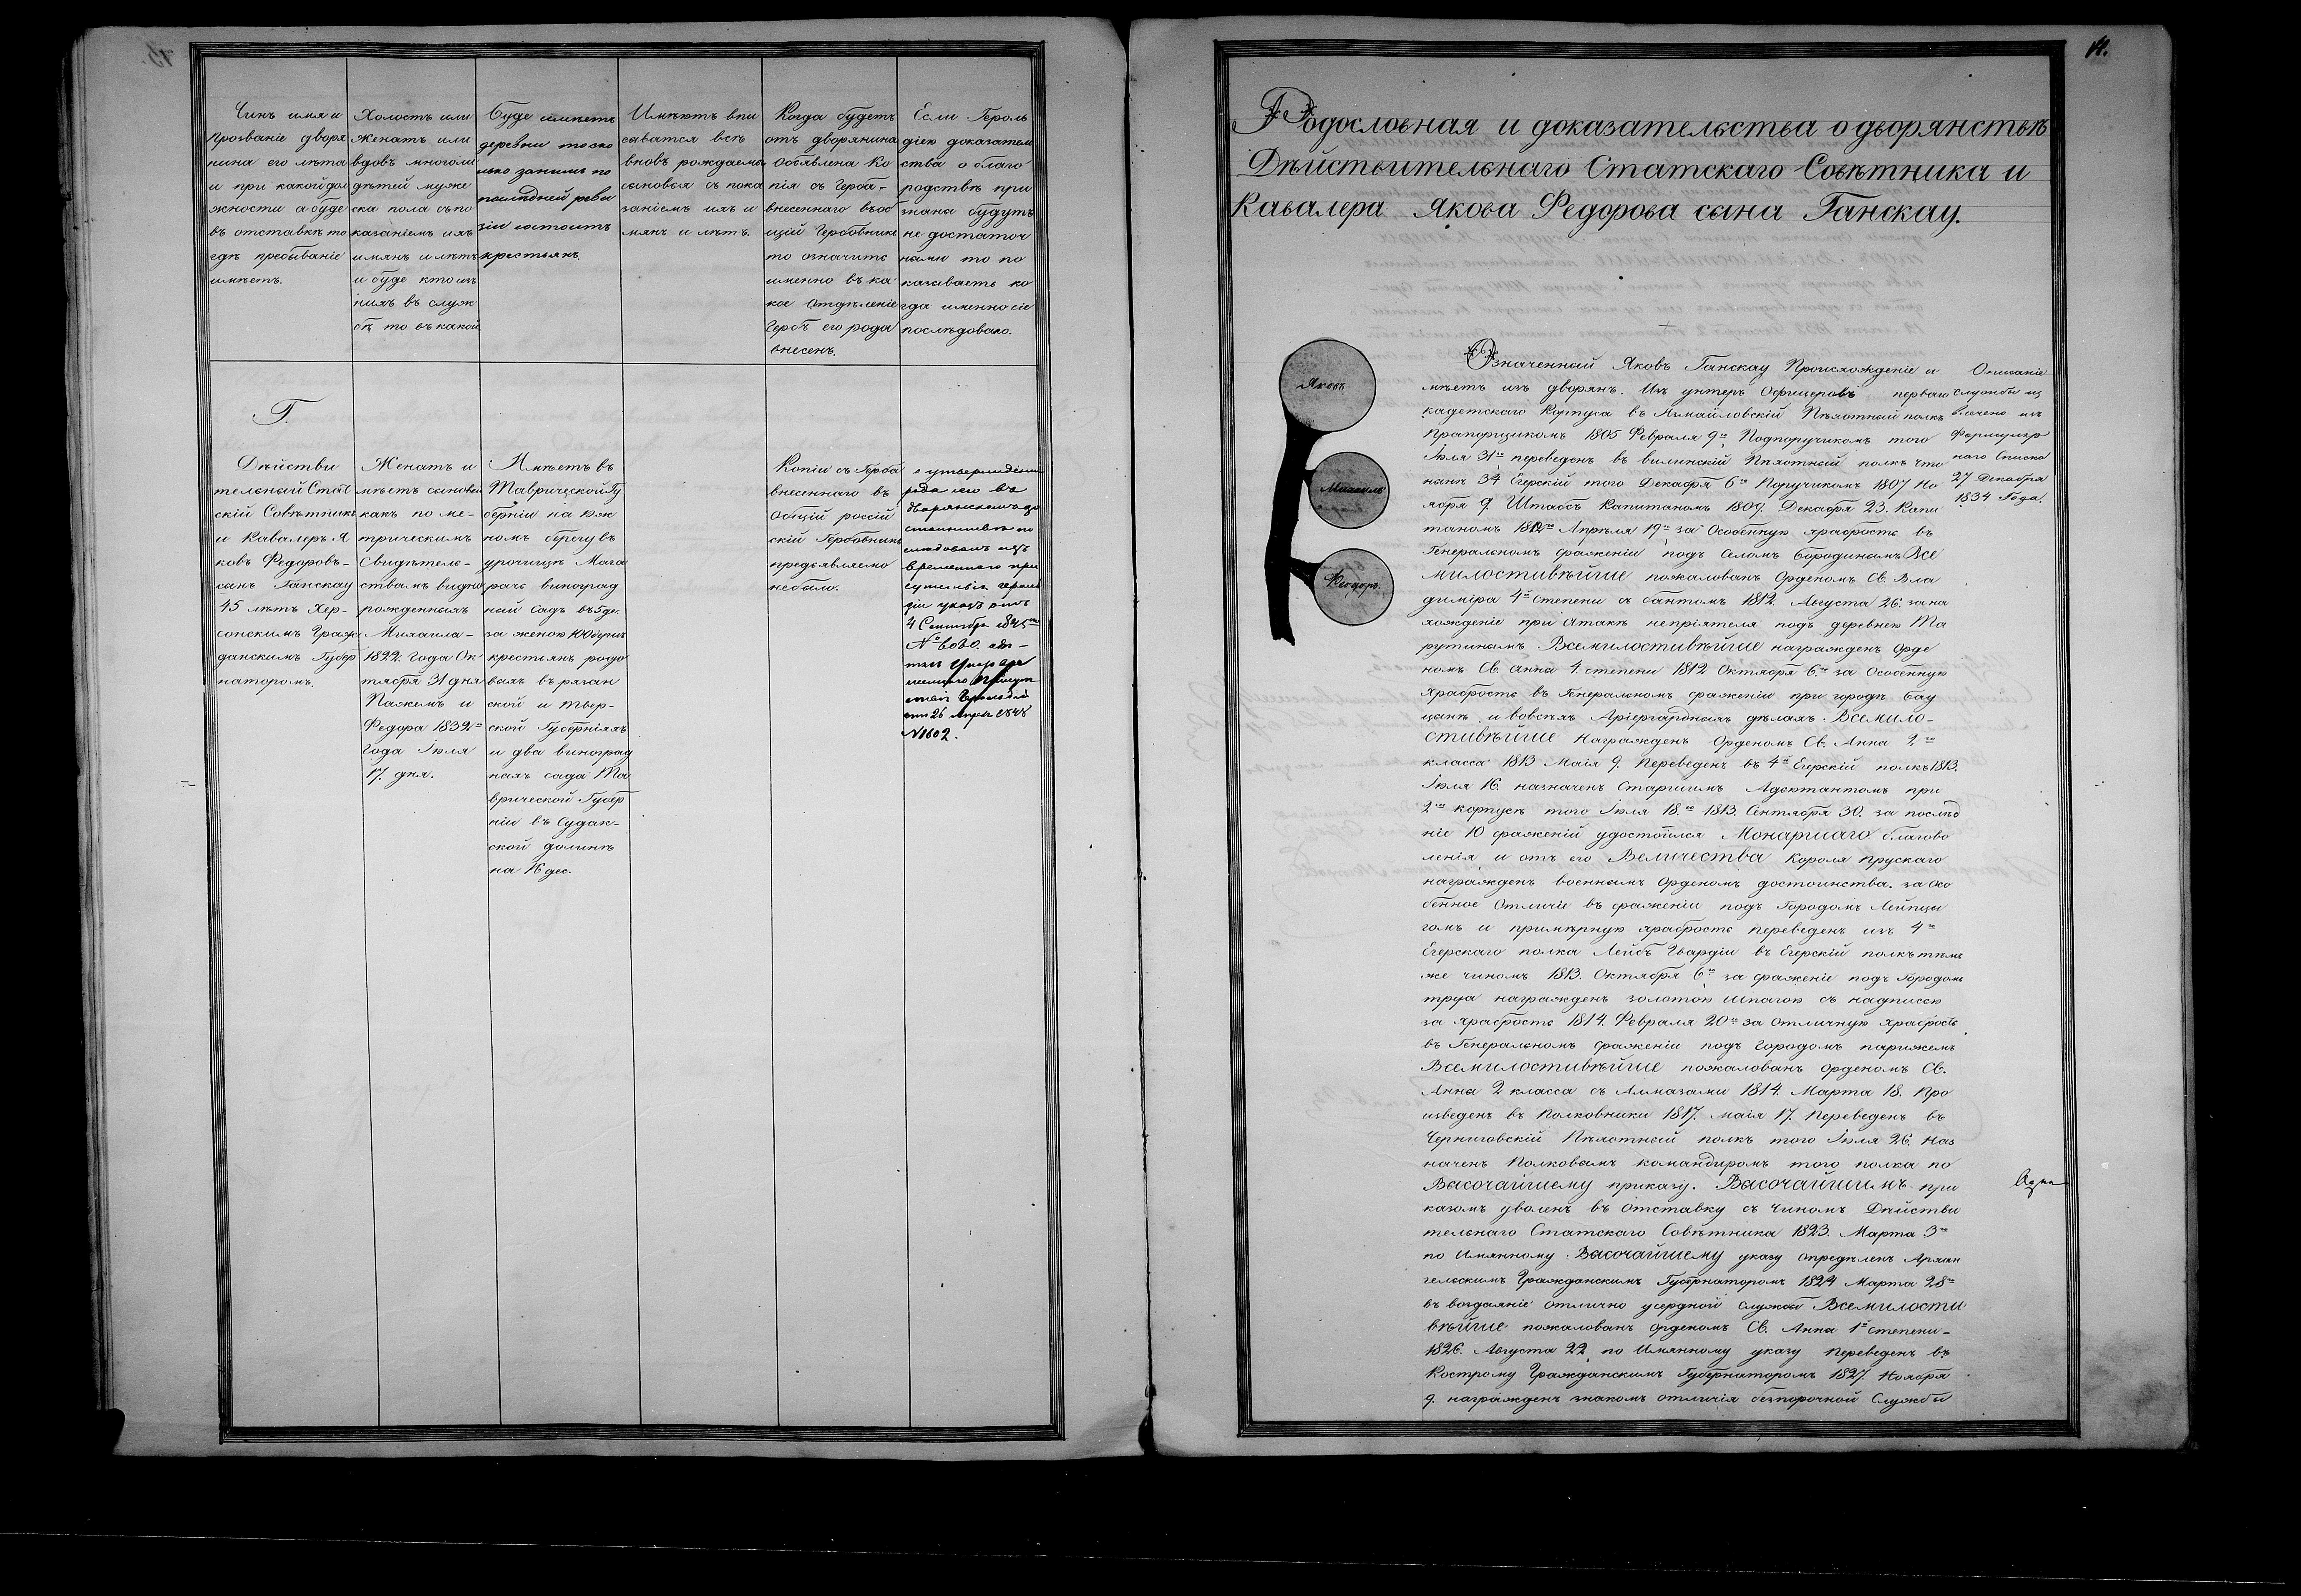 Чинъ имя и
прозваніе дворя
нина его лѣта
и при какой дол
жности а буде
въ отставкѣ то
гдѣ пребываніе
имѣетъ.
Холостъ или
женатъ или
вдовъ многоли
дѣтей муже
ска пола съ по
казаніемъ ихъ
имянъ и лѣтъ
и буде кто изъ
нихъ въ служ
бѣ то въ какой
Буде имѣетъ
деревни то ско
лько за нимъ по
послѣдней реви
зіи состоитъ
крестьянъ.
Имѣютъ впи
саватся всѣ
вновь рождаемы
сыновья съ пока
заніемъ ихъ и
мянъ и лѣтъ.
Когда будетъ
отъ дворянина
объявлена ко
пія съ герба-
внесеннаго въ об
щій Гербовникъ
то означить
именно въ ка
кое отдѣленіе
Гербъ его рода
внесенъ.
Если Героль
діею доказатель
ства о благо
родствѣ при
знаны будутъ
не достаточ
ными то по
казывать ко
гда именно сіе
послѣдовало.
Г.
Дѣйстви
тельный Стат
скій Совѣтникъ
и Кавалеръ Я
ковъ Федоровъ-
сынъ Ганскау
45 лѣтъ Хер-
сонскимъ Граж
данскимъ Губер
наторомъ.
Женатъ и
мѣетъ сыновей
какъ по ме-
трическимъ
Свидѣтель-
ствамъ видно
рожденныхъ
Михаила-
1822. Года Ок
тября 31 дня
Пажемъ и
Федора 1832го
Года Іюля
17. дня.
Имѣетъ въ
Таврической Гу
берніи на юж
номъ берегу въ
урочищѣ Мага
рачь виноград
ный садъ въ 5 де.
за женою 100 душъ
крестьянъ родо
выхъ въ рязан
ской и твер-
ской Губерніяхъ
и два виноград
ныхъ сада Та
врической Губер
ніи въ Судак-
ской долинѣ
на 16 дес.
Копіи съ Герба
внесеннаго въ
Общій россій
скій Гербовникъ
предъявляемо
не было.
о утвержденіи
рода его въ
дворянскомъ до
стоинствѣ по
слѣдовалъ изъ
временнаго при
сутствія герольд
іи указъ отъ
4 Сентября 1845го
№ 6060.
отъ 26 Апрѣля 1848
№ 1602.
14.
Родословная и доказательства о дворянствѣ
Дѣйствительнаго Статскаго Совѣтника и
Кавалера Якова Федорова сына Ганскау.
Яковъ
Михаилъ
Феодоръ.
Означенный Яковъ Ганскау Происхожденіе и
мѣетъ изъ дворянъ. Изъ унтеръ Офицеровъ перваго
кадетскаго Корпуса въ Измайловскій Пѣхотный полкъ
Прапорщикомъ 1805 Февраля 9го Подпоручикомъ того
Іюля 31го переведенъ въ вилинскій Пѣхотный полкъ что
нынѣ 34 Егерскій того Декабря 6го Поручикомъ 1807 Но
ября 9. Штабсъ Капитаномъ 1809. Декабря 23. Капи
таномъ 1812го Апрѣля 19го за Особенную храбрость въ
Генеральномъ сраженіи подъ Селомъ Бородинымъ Все
милостивѣйше пожалованъ Орденомъ Св. Вла
диміра 4й степени съ бантомъ 1812. Августа 26. за на
хожденіе при Атакѣ непріятеля подъ деревнею Та
рутинымъ Всемилостивѣйше награжденъ Орде
номъ Св. Анны 4. степени 1812 Октября 6го за Особенную
храбрость въ Генеральномъ сраженіи при городѣ Бау
ценѣ и во всѣхъ Аріергардныхъ дѣлахъ Всемило-
стивѣйше Награжденъ Орденомъ Св. Анны 2го
класса 1813 Маія 9. Переведенъ въ 4й Егерскій полкъ 1813.
Іюля 16. назначенъ Старшимъ Адъютантомъ при
2мъ корпусѣ того Іюля 18.го 1813. Сентября 30. за послѣд
ніе 10 сраженій удостоился Монаршаго благово
ленія и отъ его Величества Короля прускаго
награжденъ военнымъ Орденомъ достоинства. за Осо
бенное Отличіе въ сраженіи подъ Городомъ Лейпцы
гомъ и примѣрную храбрость переведенъ изъ 4го
Егерскаго полка Лейбъ Гвардіи въ Егерскій полкъ тѣмъ
же чиномъ 1813. Октября 6го за сраженіе подъ Городомъ
труа награжденъ золотою шпагою съ надписью
за храбрость 1814. Февраля 20го за Отличную храбрость
въ Генеральномъ сраженіи подъ Городомъ парижемъ
Всемилостивѣйше пожалованъ орденомъ Св.
Анны 2 класса съ Алмазами 1814. Марта 18. Про
изведенъ въ Полковники 1817. маія 17. Переведенъ въ
Черниговскій Пѣхотный полкъ того Іюля 26. Наз
наченъ Полковымъ командиромъ того полка по
Высочайшему приказу. Высочайшимъ при
казомъ уволенъ въ Отставку съ Чиномъ Дѣйстви
тельнаго Статскаго Совѣтника 1823. Марта 3го
по Имянному Высочайшему указу опредѣленъ Архан
гельскимъ Гражданскимъ Губернаторомъ 1824 Марта 28го
въ воздаяніе отлично усердной службы Всемилости
вѣйше пожалованъ орденомъ Св. Анны 1й степени-
1826. Августа 22 по Имянному указу Переведенъ въ
Кострому Гражданскимъ Губернаторомъ 1827. Ноября
9. награжденъ знакомъ отличія безпорочной Службы
Описаніе
службы из
влечено изъ
Формуляр
наго Списка
27 Декабря
1834 Года.